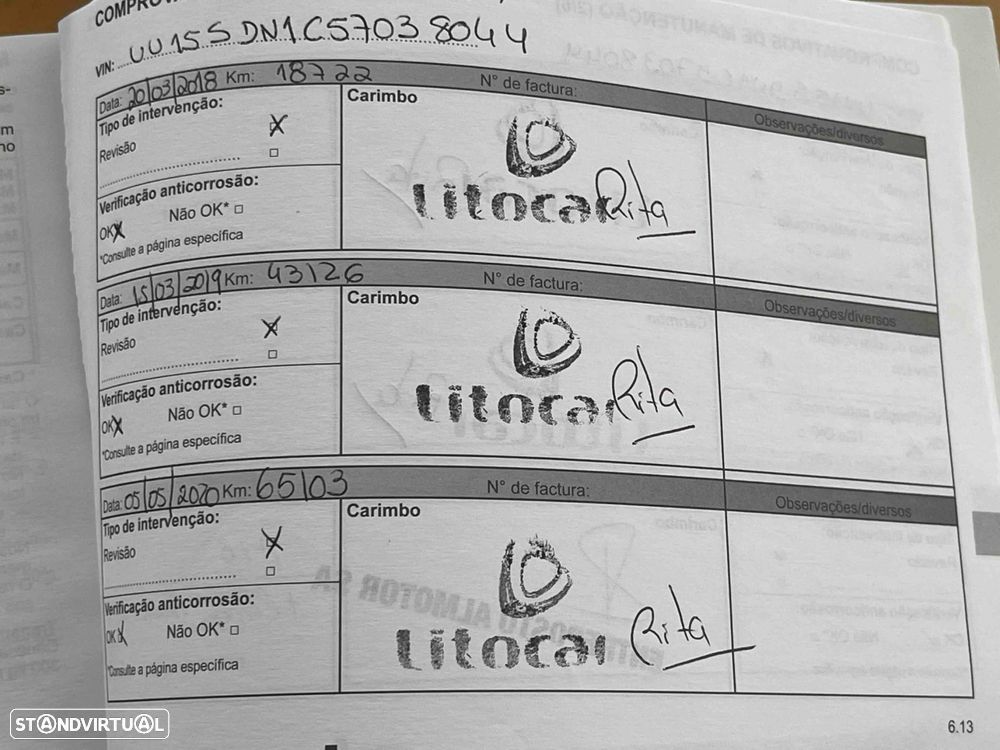 VIN: UU15SDN1C57038044
Data: 20/03/2018 Km: 18722 N° de factura:
Tipo de intervenção:
Revisão
Carimbo
Observações/diversos
Litocar Rita
Verificação anticorrosão:
OK X Não OK*
*Consulte a página específica
Data: 15/03/2019 Km: 43126 N° de factura:
Tipo de intervenção:
Revisão
Carimbo
Observações/diversos
Litocar Rita
Verificação anticorrosão:
OK X Não OK*
*Consulte a página específica
Data: 05/05/2020 Km: 65103 N° de factura:
Tipo de intervenção:
Revisão
Carimbo
Observações/diversos
Litocar Rita
Verificação anticorrosão:
OK X Não OK*
*Consulte a página específica
6.13
STANDVIRTUAL